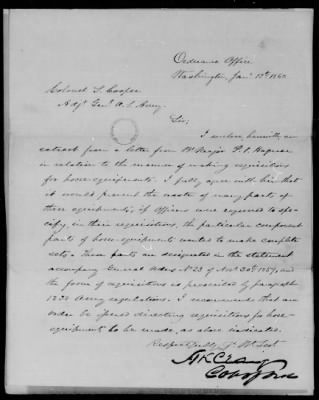 Ordnance Office
Washington Jany 13th 1860
Colonel S. Cooper
Adjt Genl U.S. Army.
Sir;
I enclose, herewith, an
extract from a letter from Bt Major P. V. Hagner
in relation to the manner of making requisitions
for horse equipments. I fully agree with him that
it would prevent the waste of many parts of
these equipments, if Officers were required to spe-
cify, in their requisitions, the particular component
parts of horse equipments wanted to make complete
sets. These parts are designated in the statement
accompg General Orders No 23 of Novr 20th 1859, and
the form of requisitions is prescribed by paragraph
1230 Army regulations. I recommend that an
order be issued directing requisitions for horse-
equipments to be made, as above indicated.
Respectfully Yr Obt Servt
H K Craig
Col of Ord